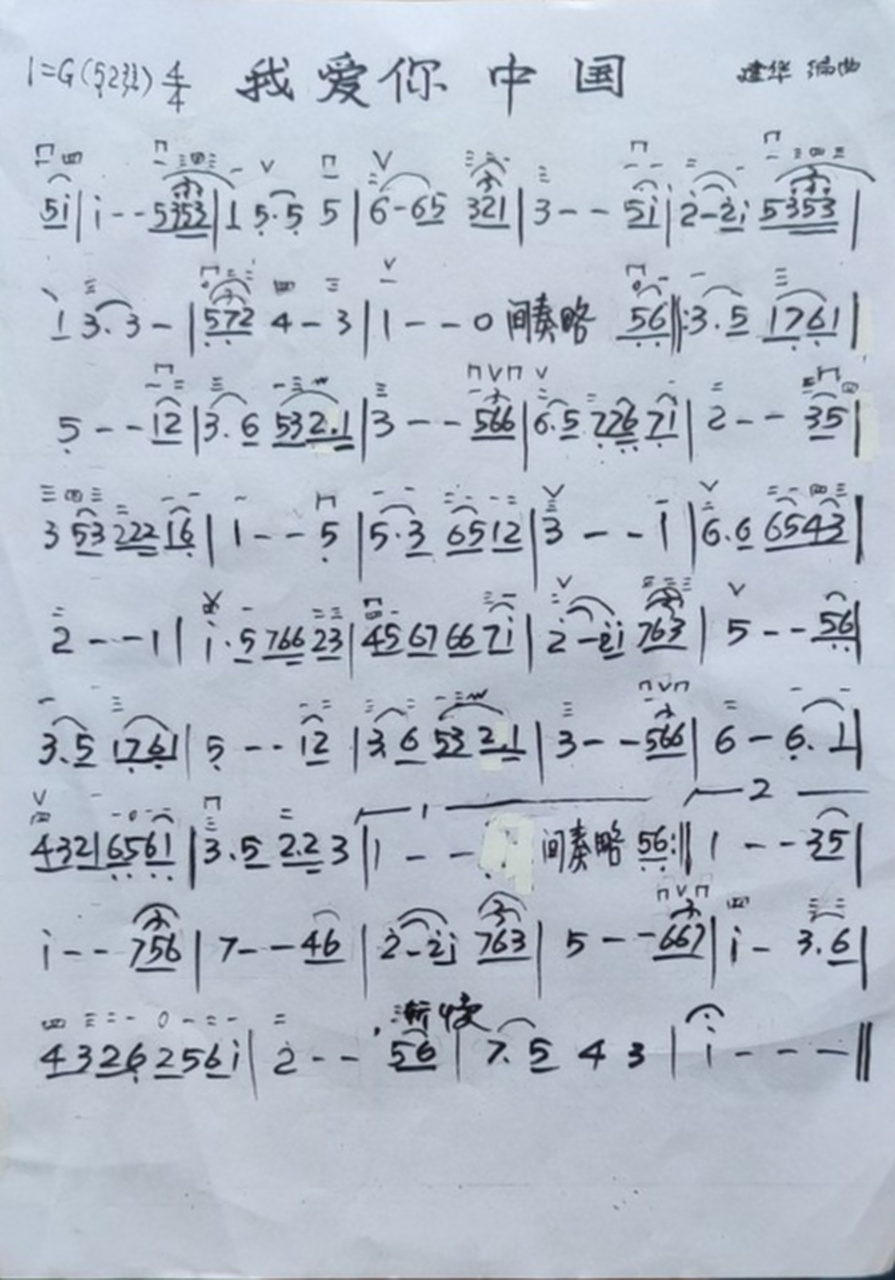 1=G(5231) 4/4 我爱你中国 建华 编曲
5i | i - - 5353 | 1 5·5 5 | 6-65 321 | 3 - - 5i | 2-2i 5353 |
1 3·3 - | 572 4-3 | 1 - - 0 间奏略 56 ‖: 3·5 1761 |
5 - - 12 | 3·6 532·1 | 3 - - 566 | 6·5 7267i | 2 - - 35 |
3 53 222 16 | 1 - - 5 | 5·3 6512 | 3 - - 1 | 6·6 6543 |
2 - - 1 | i·5 766 23 | 45 67 66 7i | 2-2i 763 | 5 - - 56 |
3·5 1761 | 5 - - 12 | 3·6 532·1 | 3 - - 566 | 6 - 6·1 |
1 2
4321 6561 | 3·5 2·2 3 | 1 - - 间奏略 56 :‖ 1 - - 35 |
i - - 756 | 7 - - 46 | 2-2i 763 | 5 - - 667 | i - 3·6 |
渐慢
4326 256i | 2 - - 56 | 7·5 4 3 | i - - - ‖